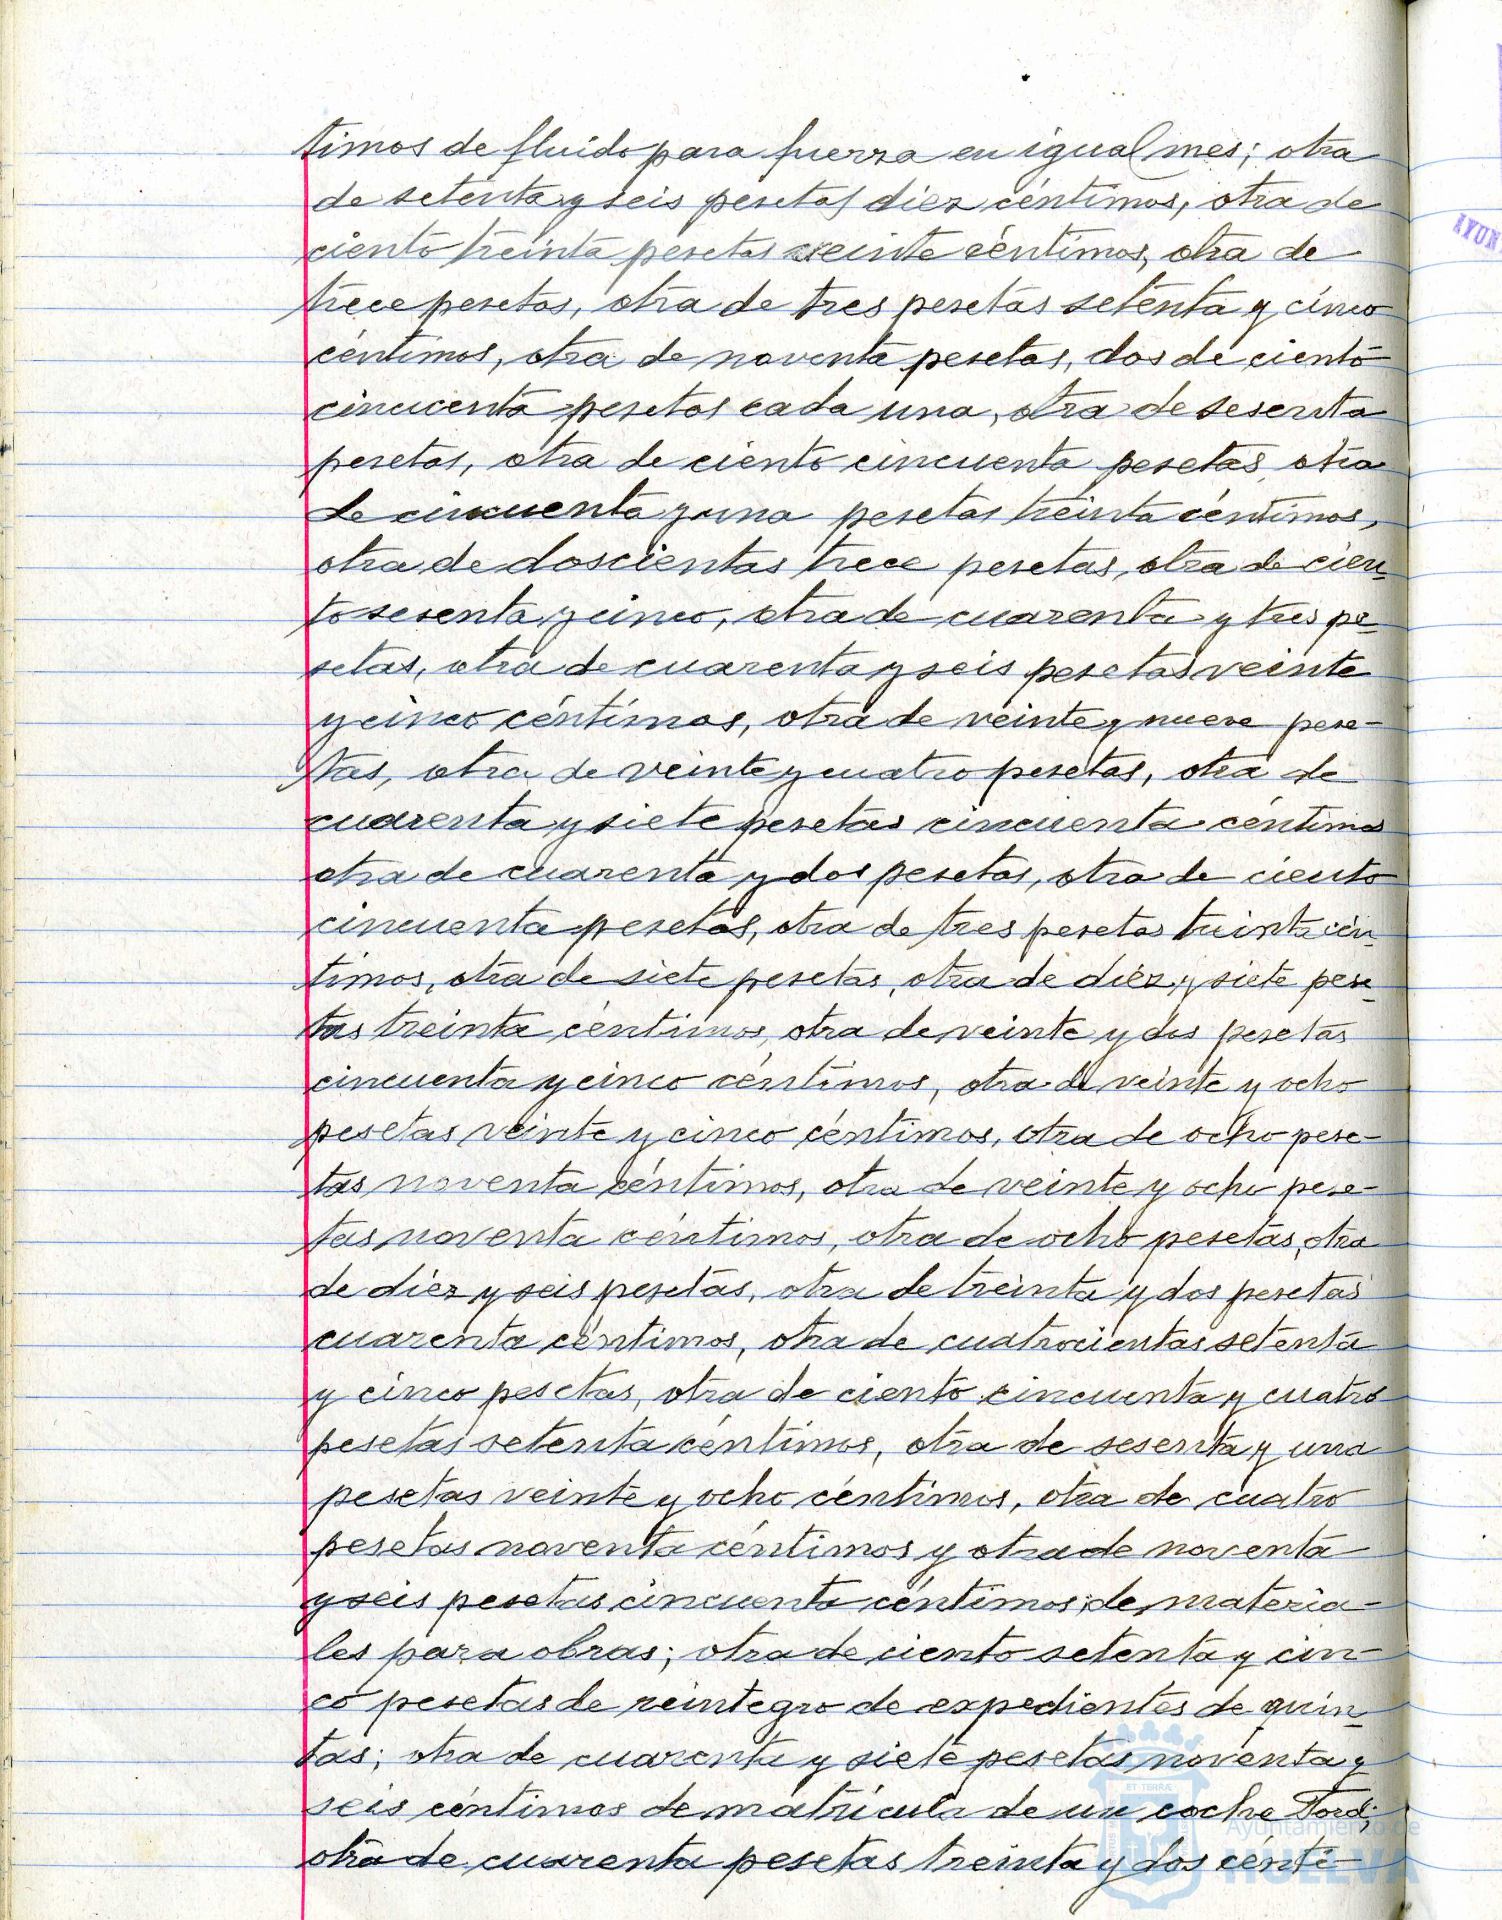 timos de fluido para fuerza en igual mes; otra
de setenta y seis pesetas diez céntimos, otra de
ciento treinta pesetas veinte céntimos, otra de
trece pesetas, otra de tres pesetas setenta y cinco
céntimos, otra de noventa pesetas, dos de ciento
cincuenta pesetas cada una, otra de sesenta
pesetas, otra de ciento cincuenta pesetas, otra
de cincuenta y una pesetas treinta céntimos,
otra de doscientas trece pesetas, otra de cien-
to sesenta y cinco, otra de cuarenta y tres pe-
setas, otra de cuarenta y seis pesetas veinte
y cinco céntimos, otra de veinte y nueve pese-
tas, otra de veinte y cuatro pesetas, otra de
cuarenta y siete pesetas cincuenta céntimos
otra de cuarenta y dos pesetas, otra de ciento
cincuenta pesetas, otra de tres pesetas treinta cén-
timos, otra de siete pesetas, otra de diez y siete pese-
tas treinta céntimos, otra de veinte y dos pesetas
cincuenta y cinco céntimos, otra de veinte y ocho
pesetas veinte y cinco céntimos, otra de ocho pese-
tas noventa céntimos, otra de veinte y ocho pese-
tas noventa céntimos, otra de ocho pesetas, otra
de diez y seis pesetas, otra de treinta y dos pesetas
cuarenta céntimos, otra de cuatrocientas setenta
y cinco pesetas, otra de ciento cincuenta y cuatro
pesetas setenta céntimos, otra de sesenta y una
pesetas veinte y ocho céntimos, otra de cuatro
pesetas noventa céntimos y otra de noventa
y seis pesetas cincuenta céntimos, de materia-
les para obras; otra de ciento setenta y cin-
co pesetas de reintegro de expedientes de quin-
tas; otra de cuarenta y siete pesetas noventa y
seis céntimos de matrícula de un coche Ford;
otra de cuarenta pesetas treinta y dos cénti-
Ayuntamiento de
HUELVA